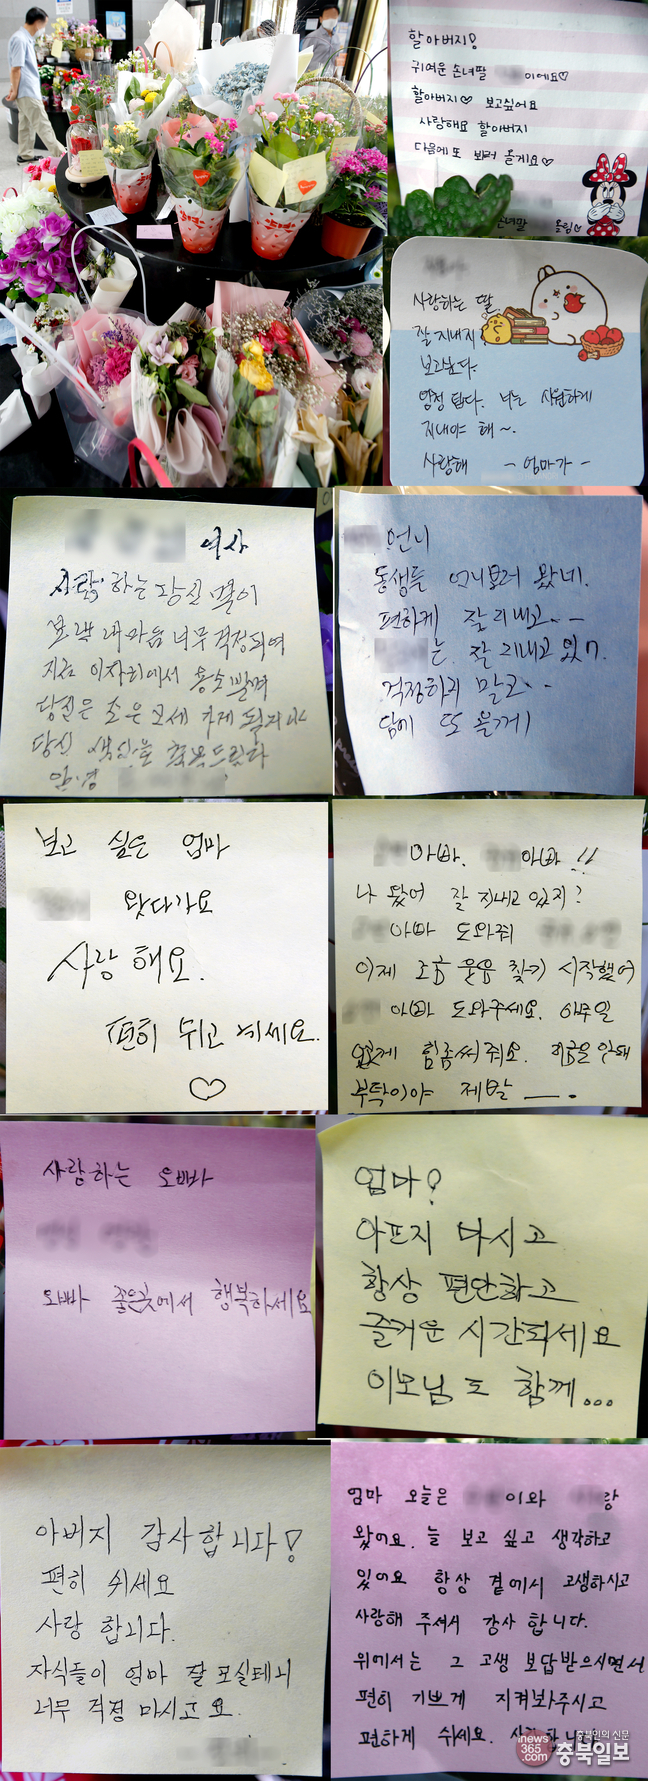 할아버지!
귀여운 손녀딸 이에요♡
할아버지♡ 보고싶어요
사랑해요 할아버지
다음에 또 봐러 올게요♡
손녀딸 올림♡
사랑하는 딸
잘 지내지
보고싶다.
엄청 덥다. 너는 시원하게
지내야 해~.
사랑해 - 엄마가 -
여사
사랑하는 당신
당신
언니
동생들 언니보러 왔네.
편하게 잘 지내고..
는 잘 지내고 있
걱정하지 말고..
담에 또 올게
보고 싶은 엄마
왔다가요
사랑해요.
편히 쉬고 계세요.
♡
아빠. 아빠!!
나 왔어 잘 지내고 있지?
아빠 도와줘
이제 조금 웃음 찾기 시작했어
아빠 도와주세요. 아무일
없게 힘좀써줘요.
부탁이야 제발 —.
사랑하는 오빠
오빠 좋은곳에서 행복하세요
엄마?
아프지 마시고
항상 편안하고
즐거운 시간되세요
이모님도 함께...
아버지 감사합니다!
편히 쉬세요
사랑 합니다.
자식들이 엄마 잘 모실테니
너무 걱정 마시고요.
엄마 오늘은 이와 랑
왔어요. 늘 보고 싶고 생각하고
있어요 항상 곁에서 고생하시고
사랑해 주셔서 감사 합니다.
위에서는 그 고생 보답받으시면서
편히 기쁘게 지켜봐주시고
편하게 쉬세요.
inews365.com
충북인의 신문
충북일보